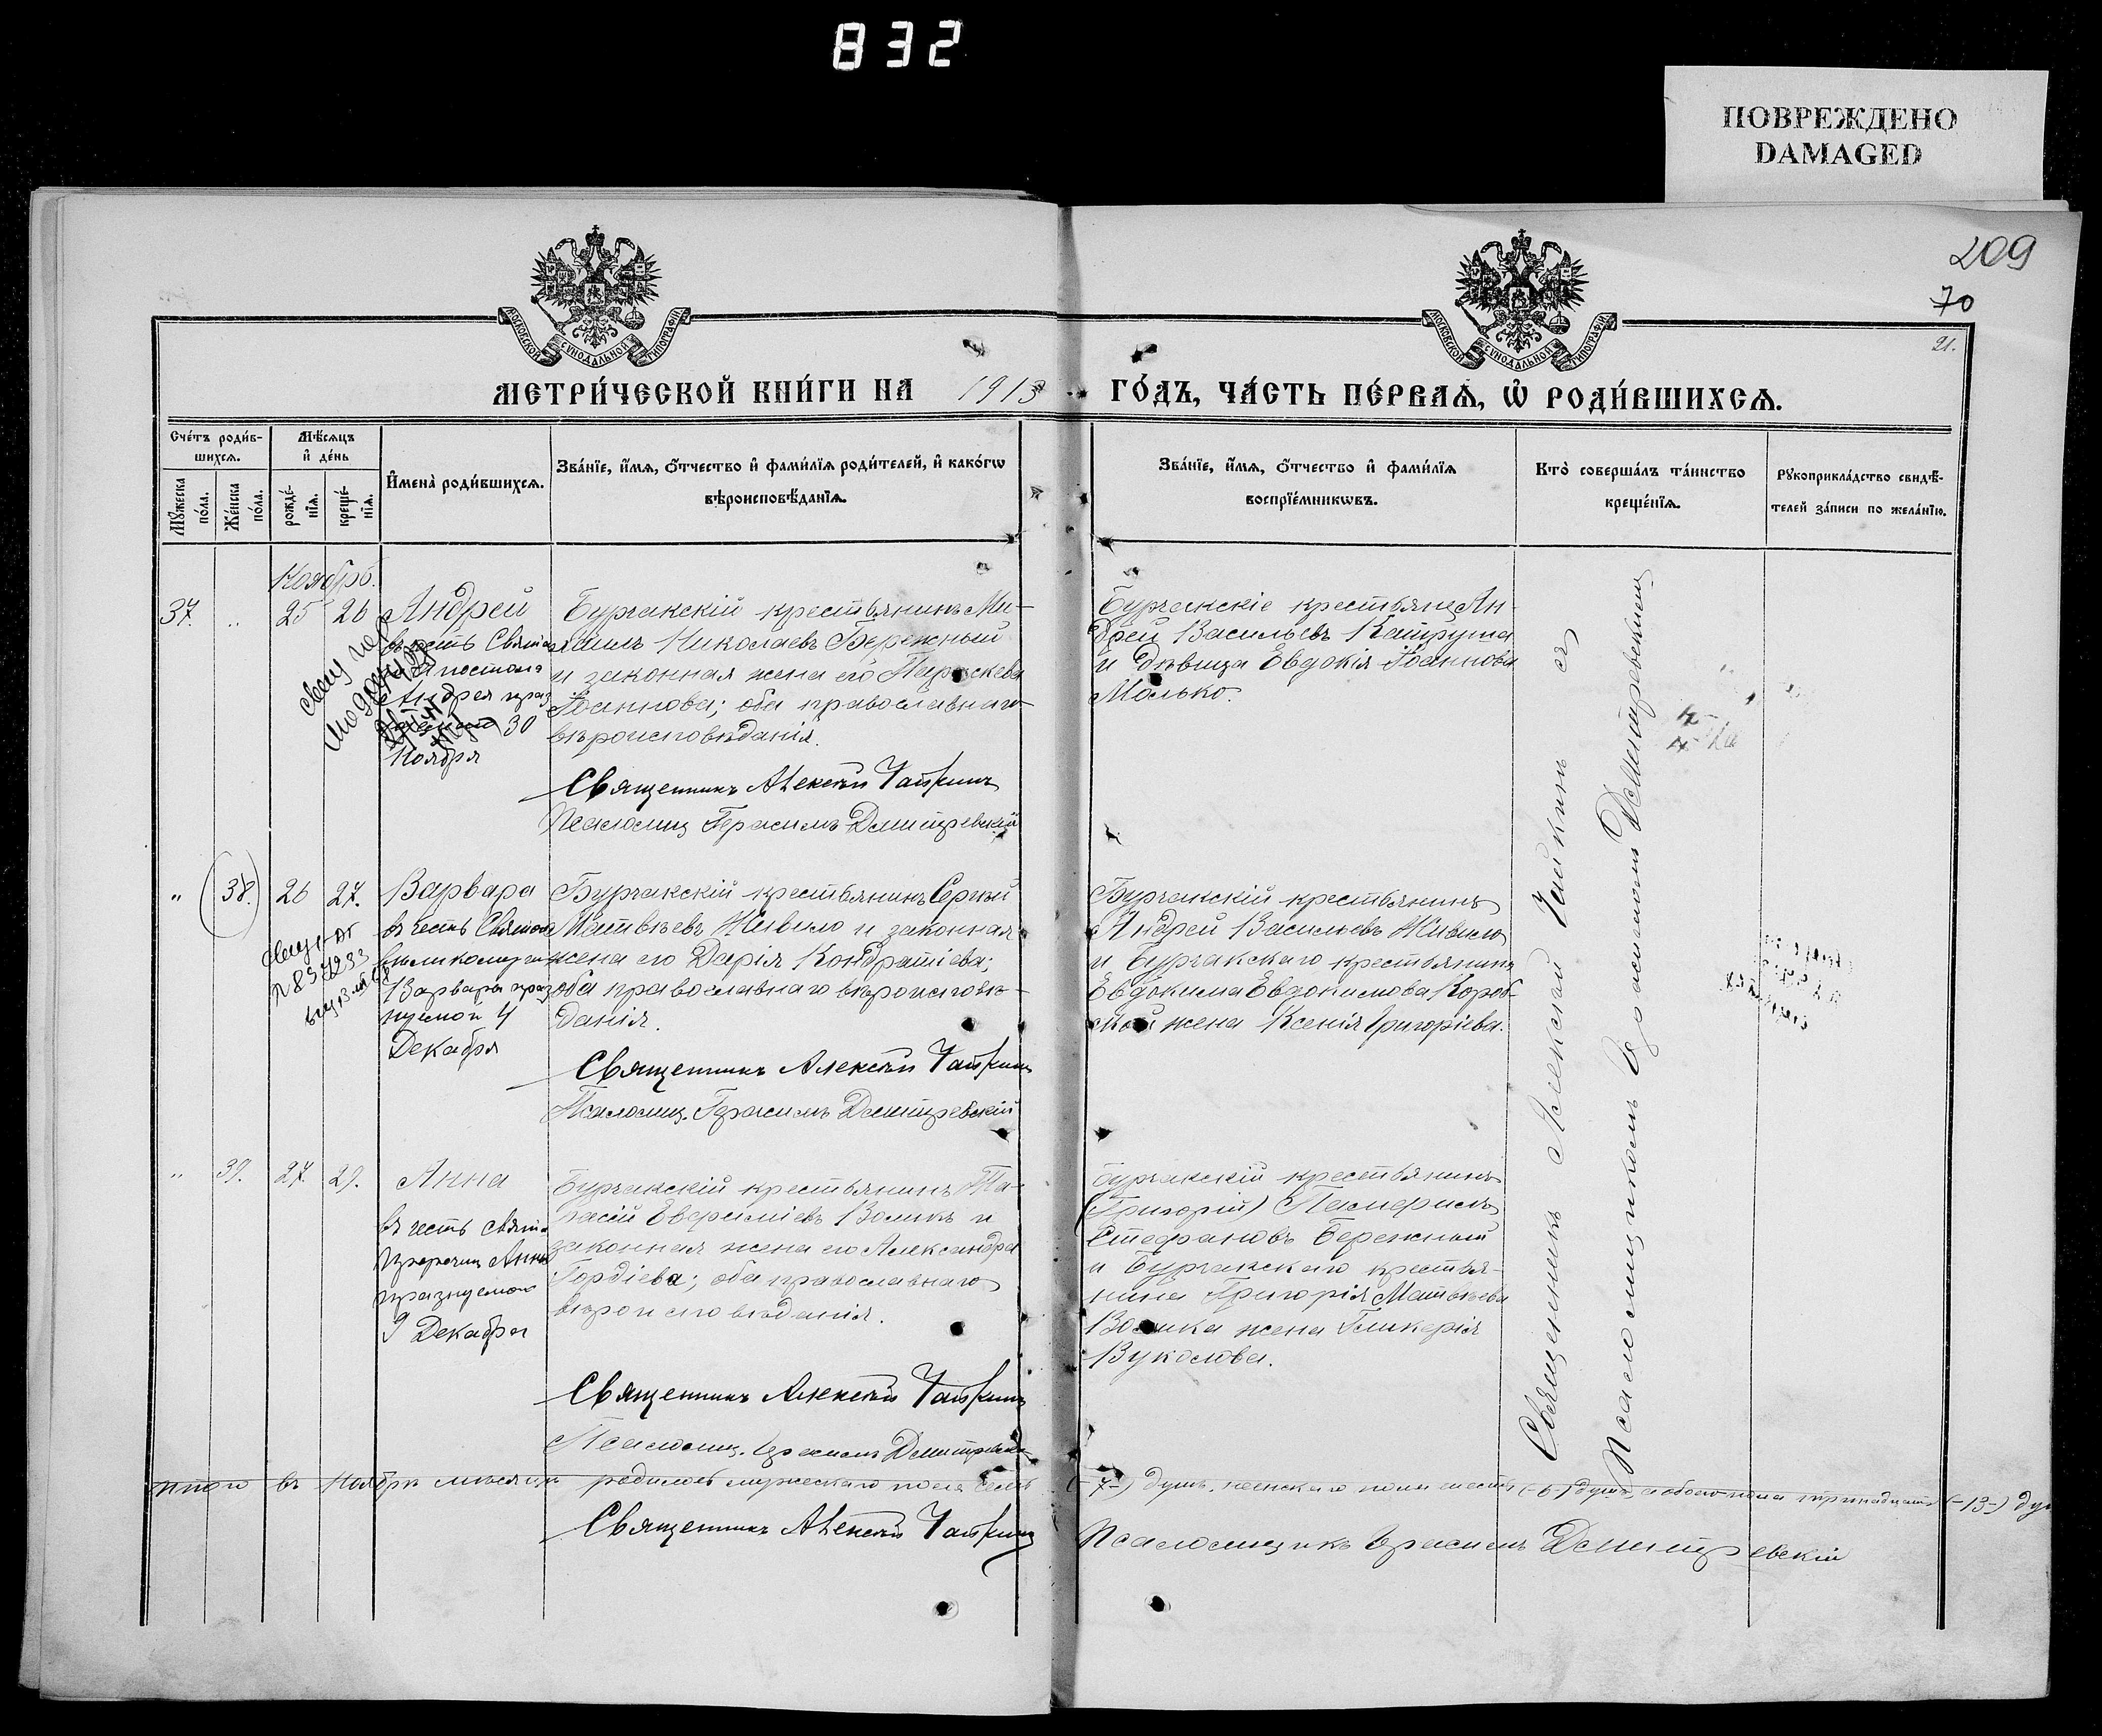 832
ПОВРЕЖДЕНО
DAMAGED
209
70
21.
МОСКОВСКОЙ СѴНОДАЛЬНОЙ ТИПОГРАФІИ
МОСКОВСКОЙ СѴНОДАЛЬНОЙ ТИПОГРАФІИ
МЕТРИ́ЧЕСКОЙ КНИ́ГИ НА 1913 ГО́ДЪ, ЧА́СТЬ ПЕ́РВАѦ, Ѡ҆ РОДИ́ВШИХСѦ.
Сче́тъ роди́в-
шихсѧ.
Мѣ́сѧцъ
и҆ де́нь
Мꙋ́жеска
по́ла.
Же́нска
по́ла.
рожде́-
нїѧ.
креще́-
нїѧ.
И҆мена̀ роди́вшихсѧ.
Зва́нїе, и҆́мѧ, ѻ҆́тчество и҆ фами́лїѧ роди́телей, и҆ како́гѡ
вѣроисповѣ́данїѧ.
Зва́нїе, и҆́мѧ, ѻ҆́тчество и҆ фами́лїѧ
воспрїе́мникѡвъ.
Кто̀ соверша́лъ та́инство
креще́нїѧ.
Рꙋкоприкла́дство свидѣ́-
телей за́писи по жела́нїю.
Ноябрь.
37. „ 25 26 Андрей
въ честь Свята
апостола
Андрея праз
30
Ноября
Бурчакскій крестьянинъ Ми-
хаилъ Николаевъ Бережный
и законная жена его Параскева
Іоаннова; оба православнаго
вѣроисповѣданія.
Священникъ Алексѣй Чайкинъ
Псаломщ. Герасимъ Дмитревскій
Бурчакскіе крестьяне Ан-
дрей Васильевъ Катруша
и дѣвица Евдокія Іоаннова
Малько.
„ 38. 26 27. Варвара
въ честь Святой
великомучен
Варвары праз
нуемой 4
Декабря
Бурчакскій крестьянинъ Сергѣй
Матвѣевъ Живило и законная
жена его Дарія Кондратіева;
оба православнаго вѣроисповѣ-
данія.
Священникъ Алексѣй Чайкинъ
Псаломщ. Герасимъ Дмитревскій
Бурчакскій крестьянинъ
Андрей Васильевъ Живило
и Бурчакскаго крестьянина
Евдокима Евдокимова Короб-
жена Ксенія Григоріева.
„ 39. 27. 29. Анна
въ честь Свята
пророчиц Анны
празнуемой
9 Декабря
Бурчакскій крестьянинъ Та-
расій Евфиміевъ Воликъ и
законная жена его Александра
Гордіева; оба православнаго
вѣроисповѣданія.
Священникъ Алексѣй Чайкинъ
Псаломщ. Герасимъ Дмитревскій
Бурчакскій крестьянинъ
(Григорій)
Стефановъ Бережный
и Бурчакскаго крестья-
нина Григорія Матвѣева
Волика жена Гликерія
Вуколова.
Священникъ Алексѣй Чайкинъ съ
Псаломщикомъ Герасимомъ Дмитревскимъ
Итого въ Ноябрѣ мѣсяцѣ родилось мужескаго пола семь (-7-) душъ, женскаго пола шесть (-6-) душъ, а обоего пола тринадцать (-13-) душ
Священникъ Алексѣй Чайкинъ
Псаломщикъ Герасимъ Дмитревскій